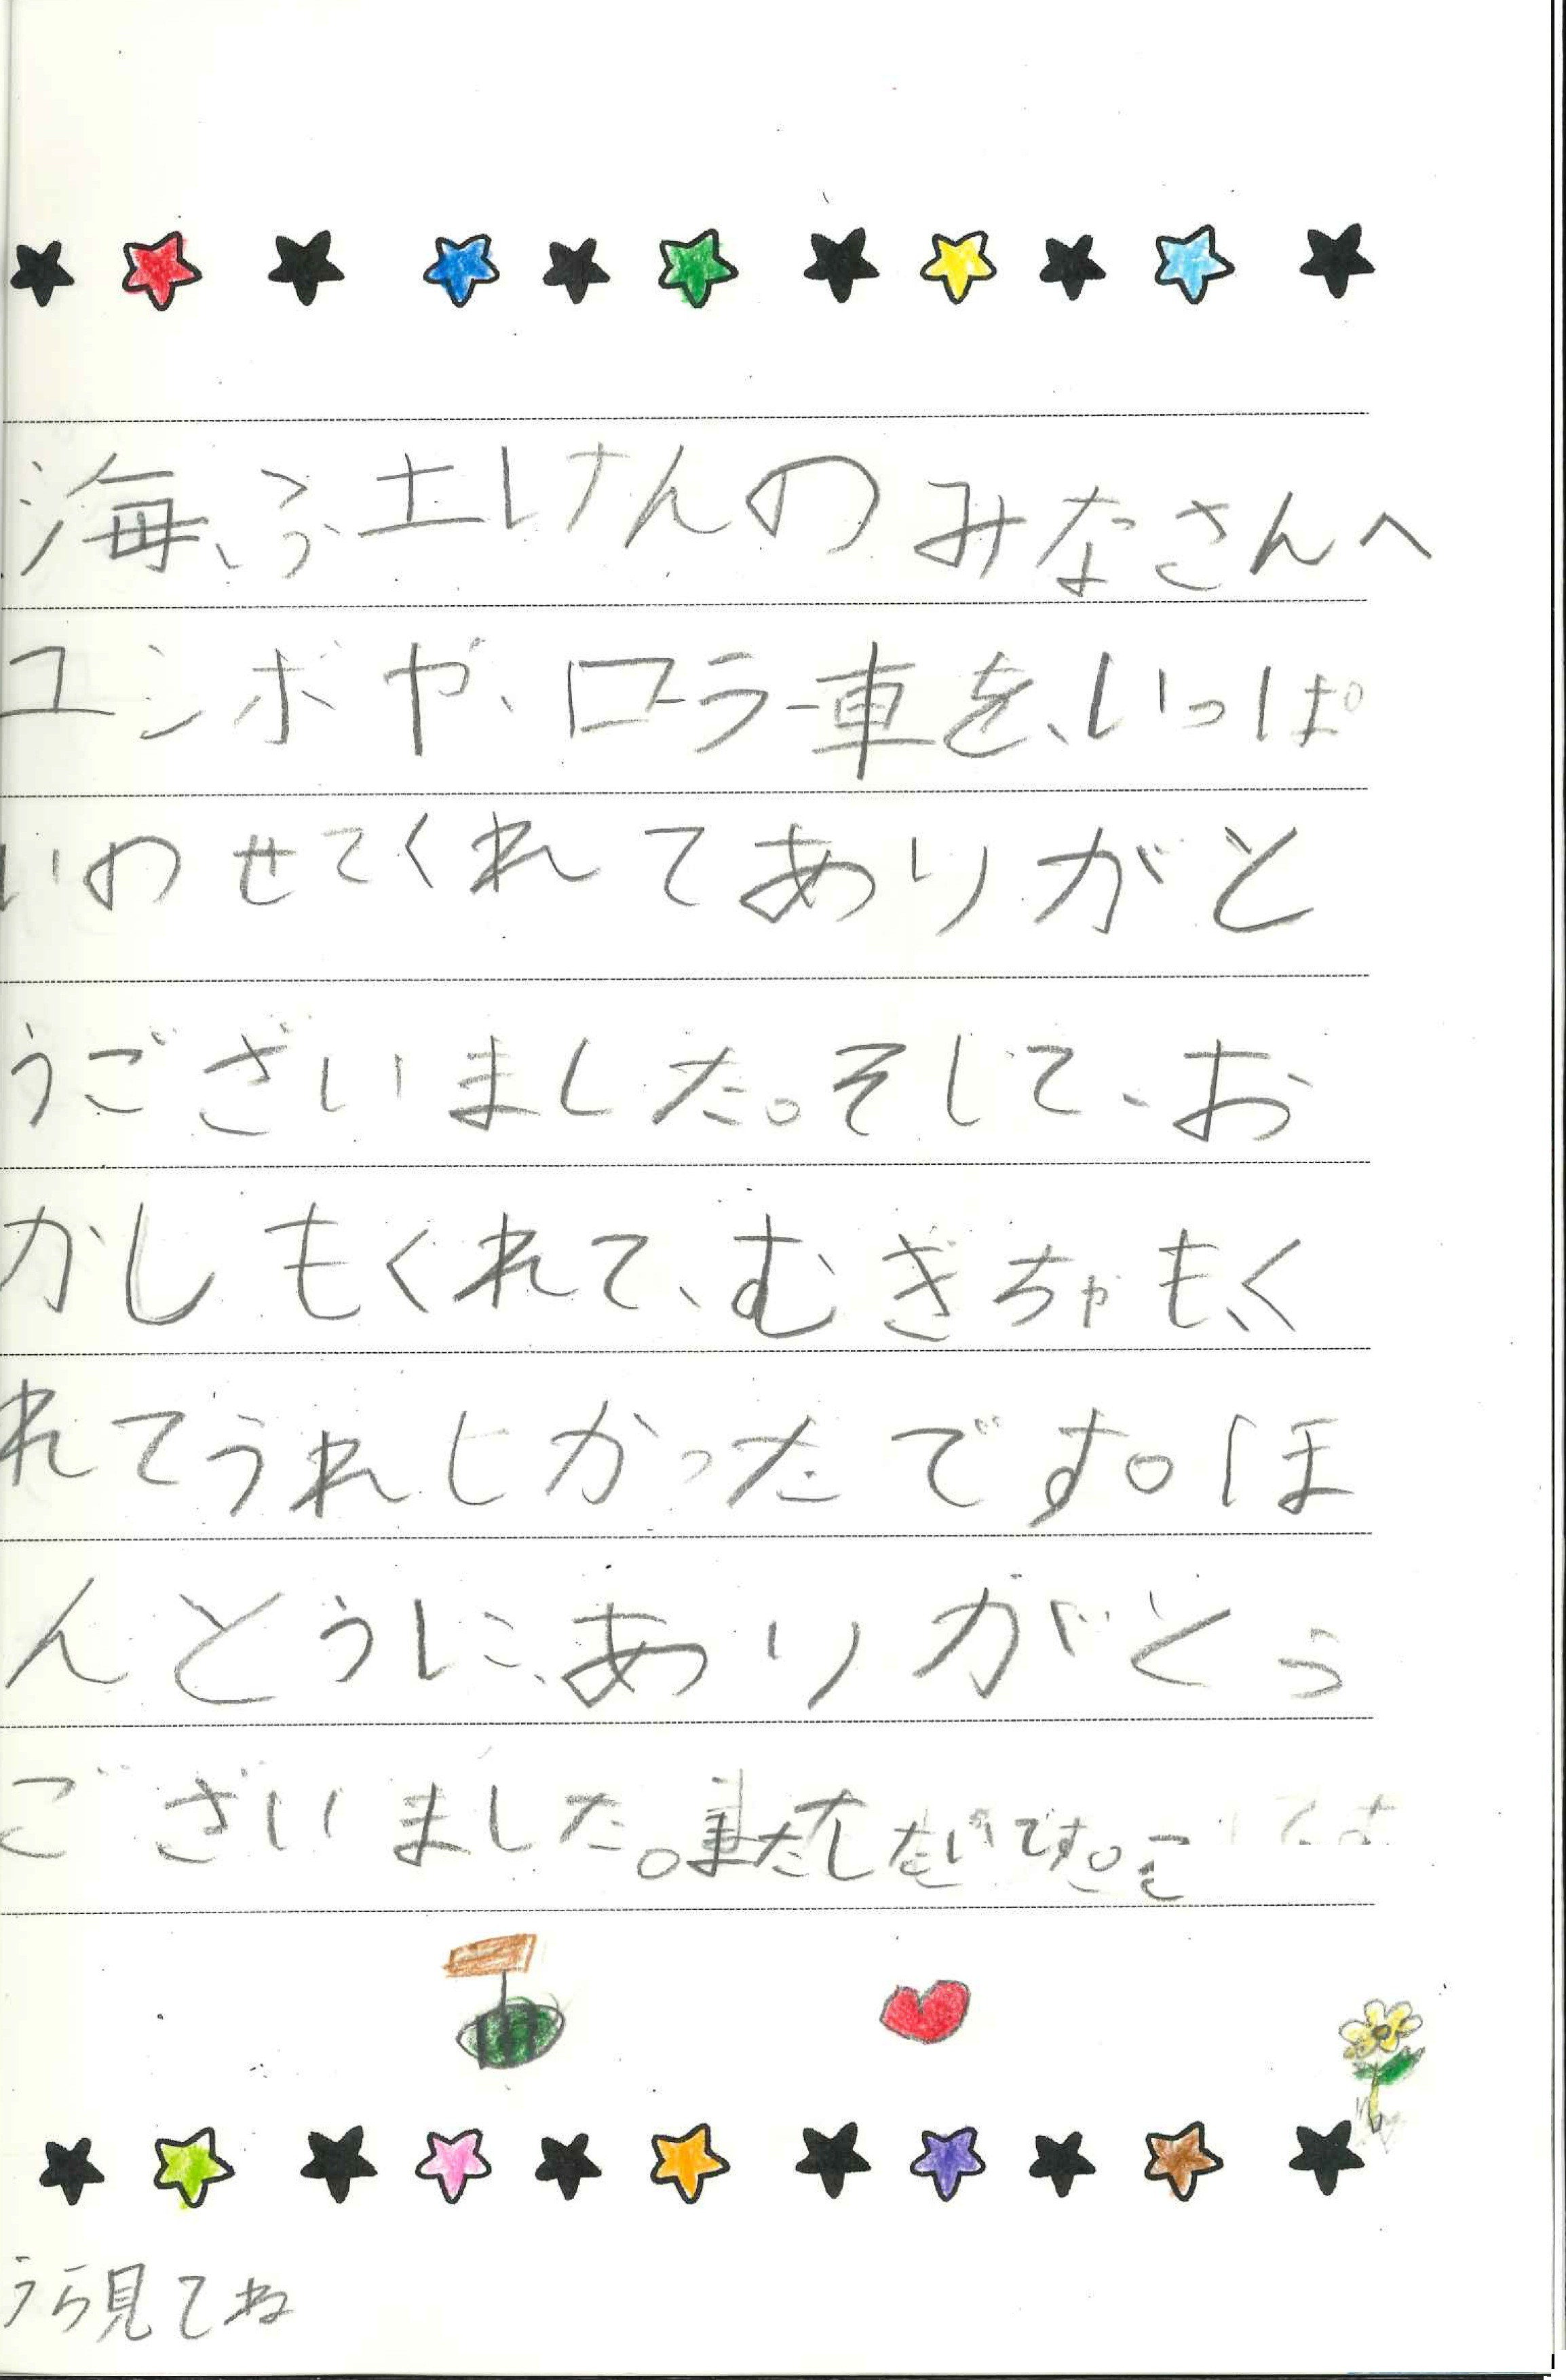 海ふ土けんのみなさんへ
ユンボや、ローラー車を、いっぱ
いのせてくれてありがと
うございました。そして、お
かしもくれて、むぎちゃもく
れてうれしかったです。ほ
んとうに、ありがとう
ございました。またしたいです。
うら見てね